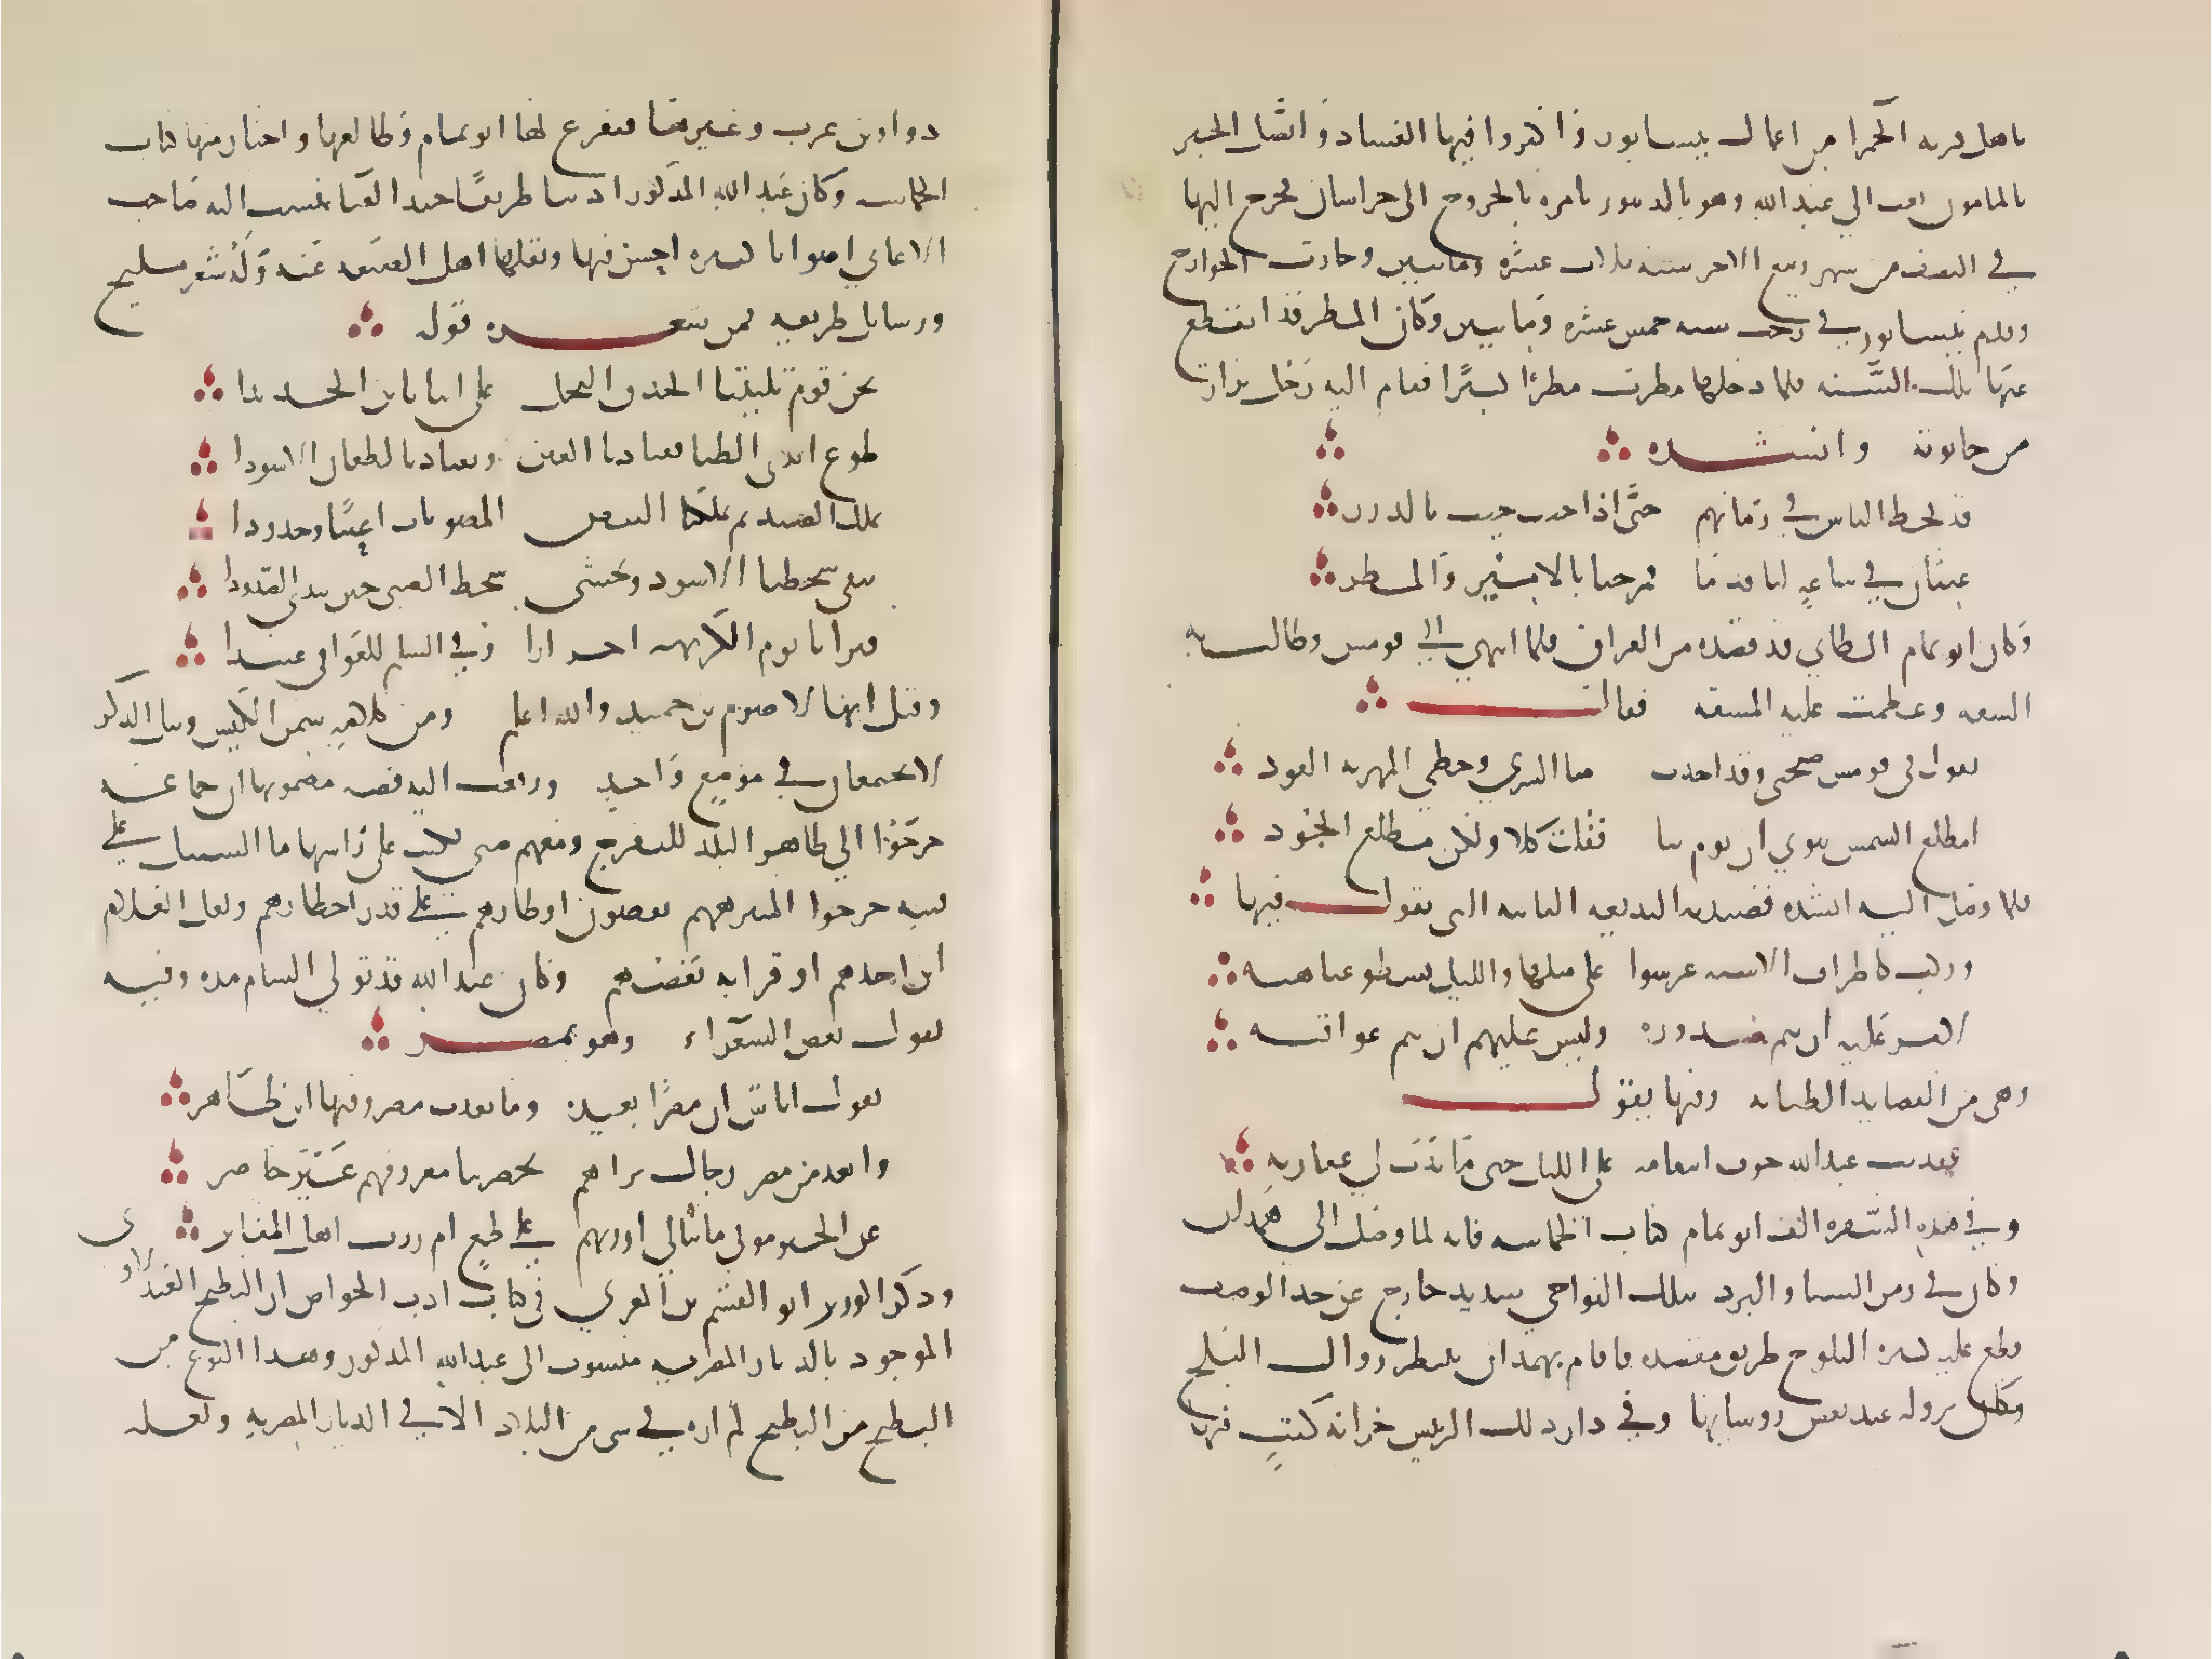 باهل قريه الحمرا من اعمال نيسابور واكثروا فيها الفساد واتصل الخبر
بالمامون بعث الي عبد الله وهو بالدينور يامره بالخروج الى خراسان فخرج اليها
في النصف من شهر ربيع الاخر سنه ثلاث عشره ومايتين وحارب الخوارج
وقدم نيسابور في رجب سنه خمس عشره ومايتين وكان المطر قد انقطع
عنها تلك السنه فلما دخلها مطرت مطرًا كثيرًا فقام اليه رجل بزاز
من حانوته وانشده
قد قحط الناس في زمانهم حتى اذا جيت جيت بالدرر
غيثان في ساعةٍ لنا قدما فمرحبا بالامير والمطر
وكان ابو تمام الطاي قد قصده من العراق فلما انتهى الي قومس وطالت به
الشقه وعظمت عليه المشقه فقال
يقول في قومس صحبي وقد اخذت منا السرى وخطى المهريه القود
امطلع الشمس تنوي ان توم بنا فقلت كلا ولكن مطلع الجود
فلما وصل اليه انشده قصيدته البديعه البائيه التي يقول فيها
وركب كاطراف الاسنه عرسوا على مثلها والليل تسطو غياهبه
لامر عليهم ان تتم صدوره وليس عليهم ان تتم عواقبه
وهي من القصايد الطنانه وفيها يقول
فقد بث عبد الله خوف انتقامه على الليل حتى ما تدب لي عقاربه
وفي هذه السفره الف ابو تمام كتاب الحماسه فانه لما وصل الى همدان
وكان في زمن الشتا والبرد بتلك النواحي شديد خارج عن حد الوصف
قطع عليه كثره الثلوج طريق مقصده فاقام بهمدان ينتظر زوال الثلج
وكان نزوله عند بعض روسايها وفي دار ذلك الرئيس خزانه كتب فيها
دواوين عرب وغيرها فتفرغ لها ابو تمام وطالعها واختار منها كتاب
الحماسه وكان عبد الله المذكور اديبا ظريفًا جيد الغنا نسب اليه صاحب
الاغاني اصواتا كثيره احسن فيها ونقلها اهل الصنعه عنه وله شعر مليح
ورسايل ظريفه فمن شعره قوله
نحن قوم تليننا الحدق النجل على اننا نلين الحديدا
طوع ايدي الظبا تقتادنا العين ونقتاد بالطعان الاسودا
نملك الصيد ثم تملكنا البيض المصونات اعينًا وخدودا
تتقي سخطنا الاسود ونخشى سخط الخشف حين يبدي الصدودا
فترانا يوم الكريهه احرارا وفي السلم للغواني عبيدا
وقيل انها لاصرم بن حميد والله اعلم ومن كلامه سمن الكيس ونبل الذكر
لا يجتمعان في موضع واحد ورفعت اليه قصه مضمونها ان جماعه
خرجوا الي ظاهر البلد للتفرج ومعهم صبي فكتب على راسها ما السبيل على
فتيه خرجوا لمتنزههم يقضون اوطارهم على قدر اخطارهم ولعل الغلام
ابن احدهم او قرابه بعضهم وكان عبد الله قد تولي الشام مده وفيه
يقول بعض الشعراء وهو بمصر
يقول اناس ان مصرًا بعيده وما بعدت مصر وفيها ابن طاهر
وابعد من مصر رجال تراهم بحضرتنا معروفهم غير حاضر
عن الخير موتى ما تبالي ازرتهم على طمع ام زرت اهل المقابر
وذكر الوزير ابو القسم بن المغربي في كتاب ادب الخواص ان البطيخ العبدلاوي
الموجود بالديار المصريه منسوب الى عبد الله المذكور وهذا النوع من
البطيخ من البطيخ لم اره في شي من البلاد الا في الديار المصريه ولعله